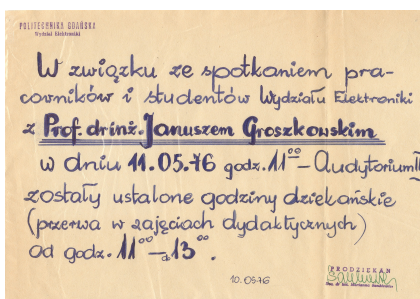 POLITECHNIKA GDAŃSKA
Wydział Elektroniki
W związku ze spotkaniem pra-
cowników i studentów Wydziału Elektroniki
z Prof. dr inż. Januszem Groszkowskim
w dniu 11.05.76 godz. 11⁰⁰ – Audytorium II
zostały ustalone godziny dziekańskie
(przerwa w zajęciach dydaktycznych)
od godz. 11⁰⁰ – 13⁰⁰.
10.0576
PRODZIEKAN